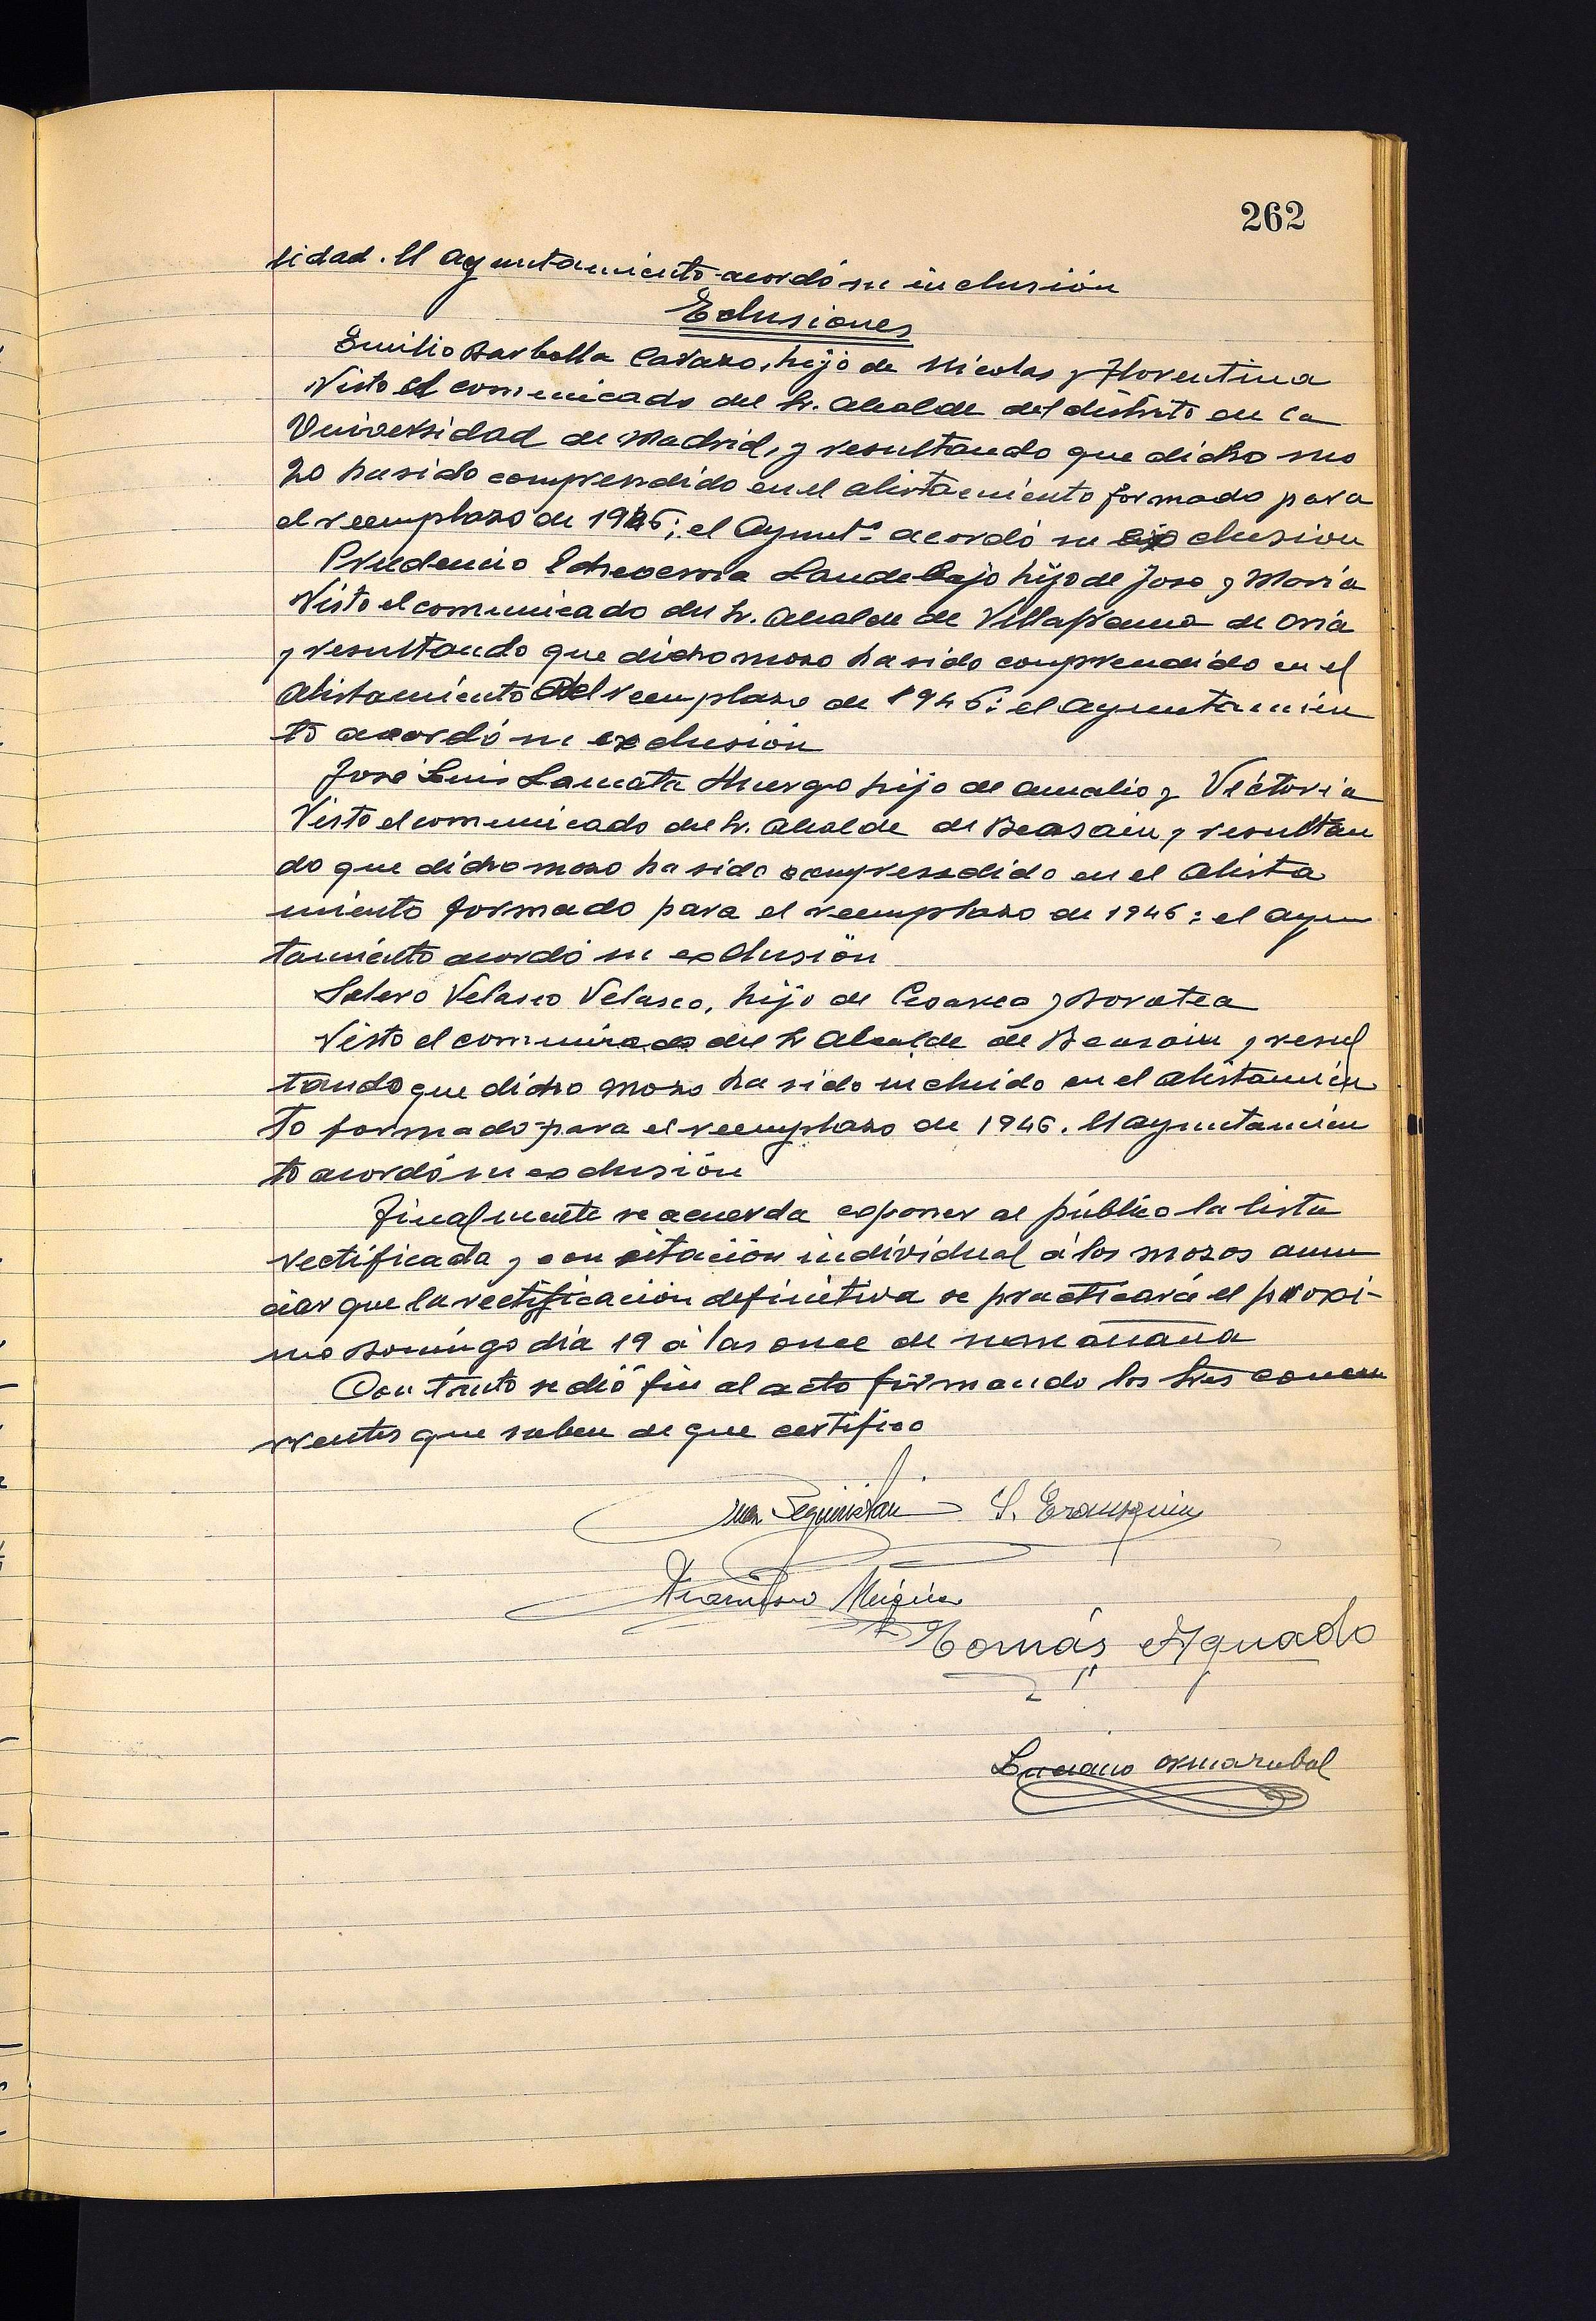 262
lidad. El Ayuntamiento acordó su inclusión
Eclusiones
Emilio Barbolla Cavazo, hijo de Nicolas y Florentina
Visto el comunicado del Sr. Alcalde del distrito en la
Universidad de Madrid, y resultando que dicho mo
zo ha sido comprendido en el alistamiento formado para
el reemplazo de 1946; el Ayuntº acordó su exclusion
Prudencio Echeverria Laudebajo hijo de Jose y Maria
Visto el comunicado del Sr. Alcalde de Villafranca de Oria
y resultando que dicho mozo ha sido comprendido en el
Alistamiento del reemplazo de 1946: el Ayuntamien
to acordó su exclusión
José Luis Lamata Huergo hijo de Amalio y Victoria
Visto el comunicado del Sr. Alcalde de Beasain y resultan
do que dicho mozo ha sido comprendido en el Alista
miento formado para el reemplazo de 1946: el ayun
tamiento acordó su exclusión
Velasco Velasco, hijo de Cesareo y Dorotea
Visto el comunicado del Sr Alcalde de Beasain y resul
tando que dicho mozo ha sido incluido en el alistamien
to formado para el reemplazo de 1946. El ayuntamien
to acordó su exclusión
Finalmente se acuerda exponer al público la lista
rectificada y con citación individual á los mozos anun
ciar que la rectificación definitiva se practicará el proxi-
mo Domingo dia 19 á las once de su mañana
Con tanto se dió fin al acto firmando los Sres concu
rrentes que saben de que certifico
Juan Seguiristain S. Erausquin
Francisco Múgica
Tomás Aguado
Luciano Ormazabal